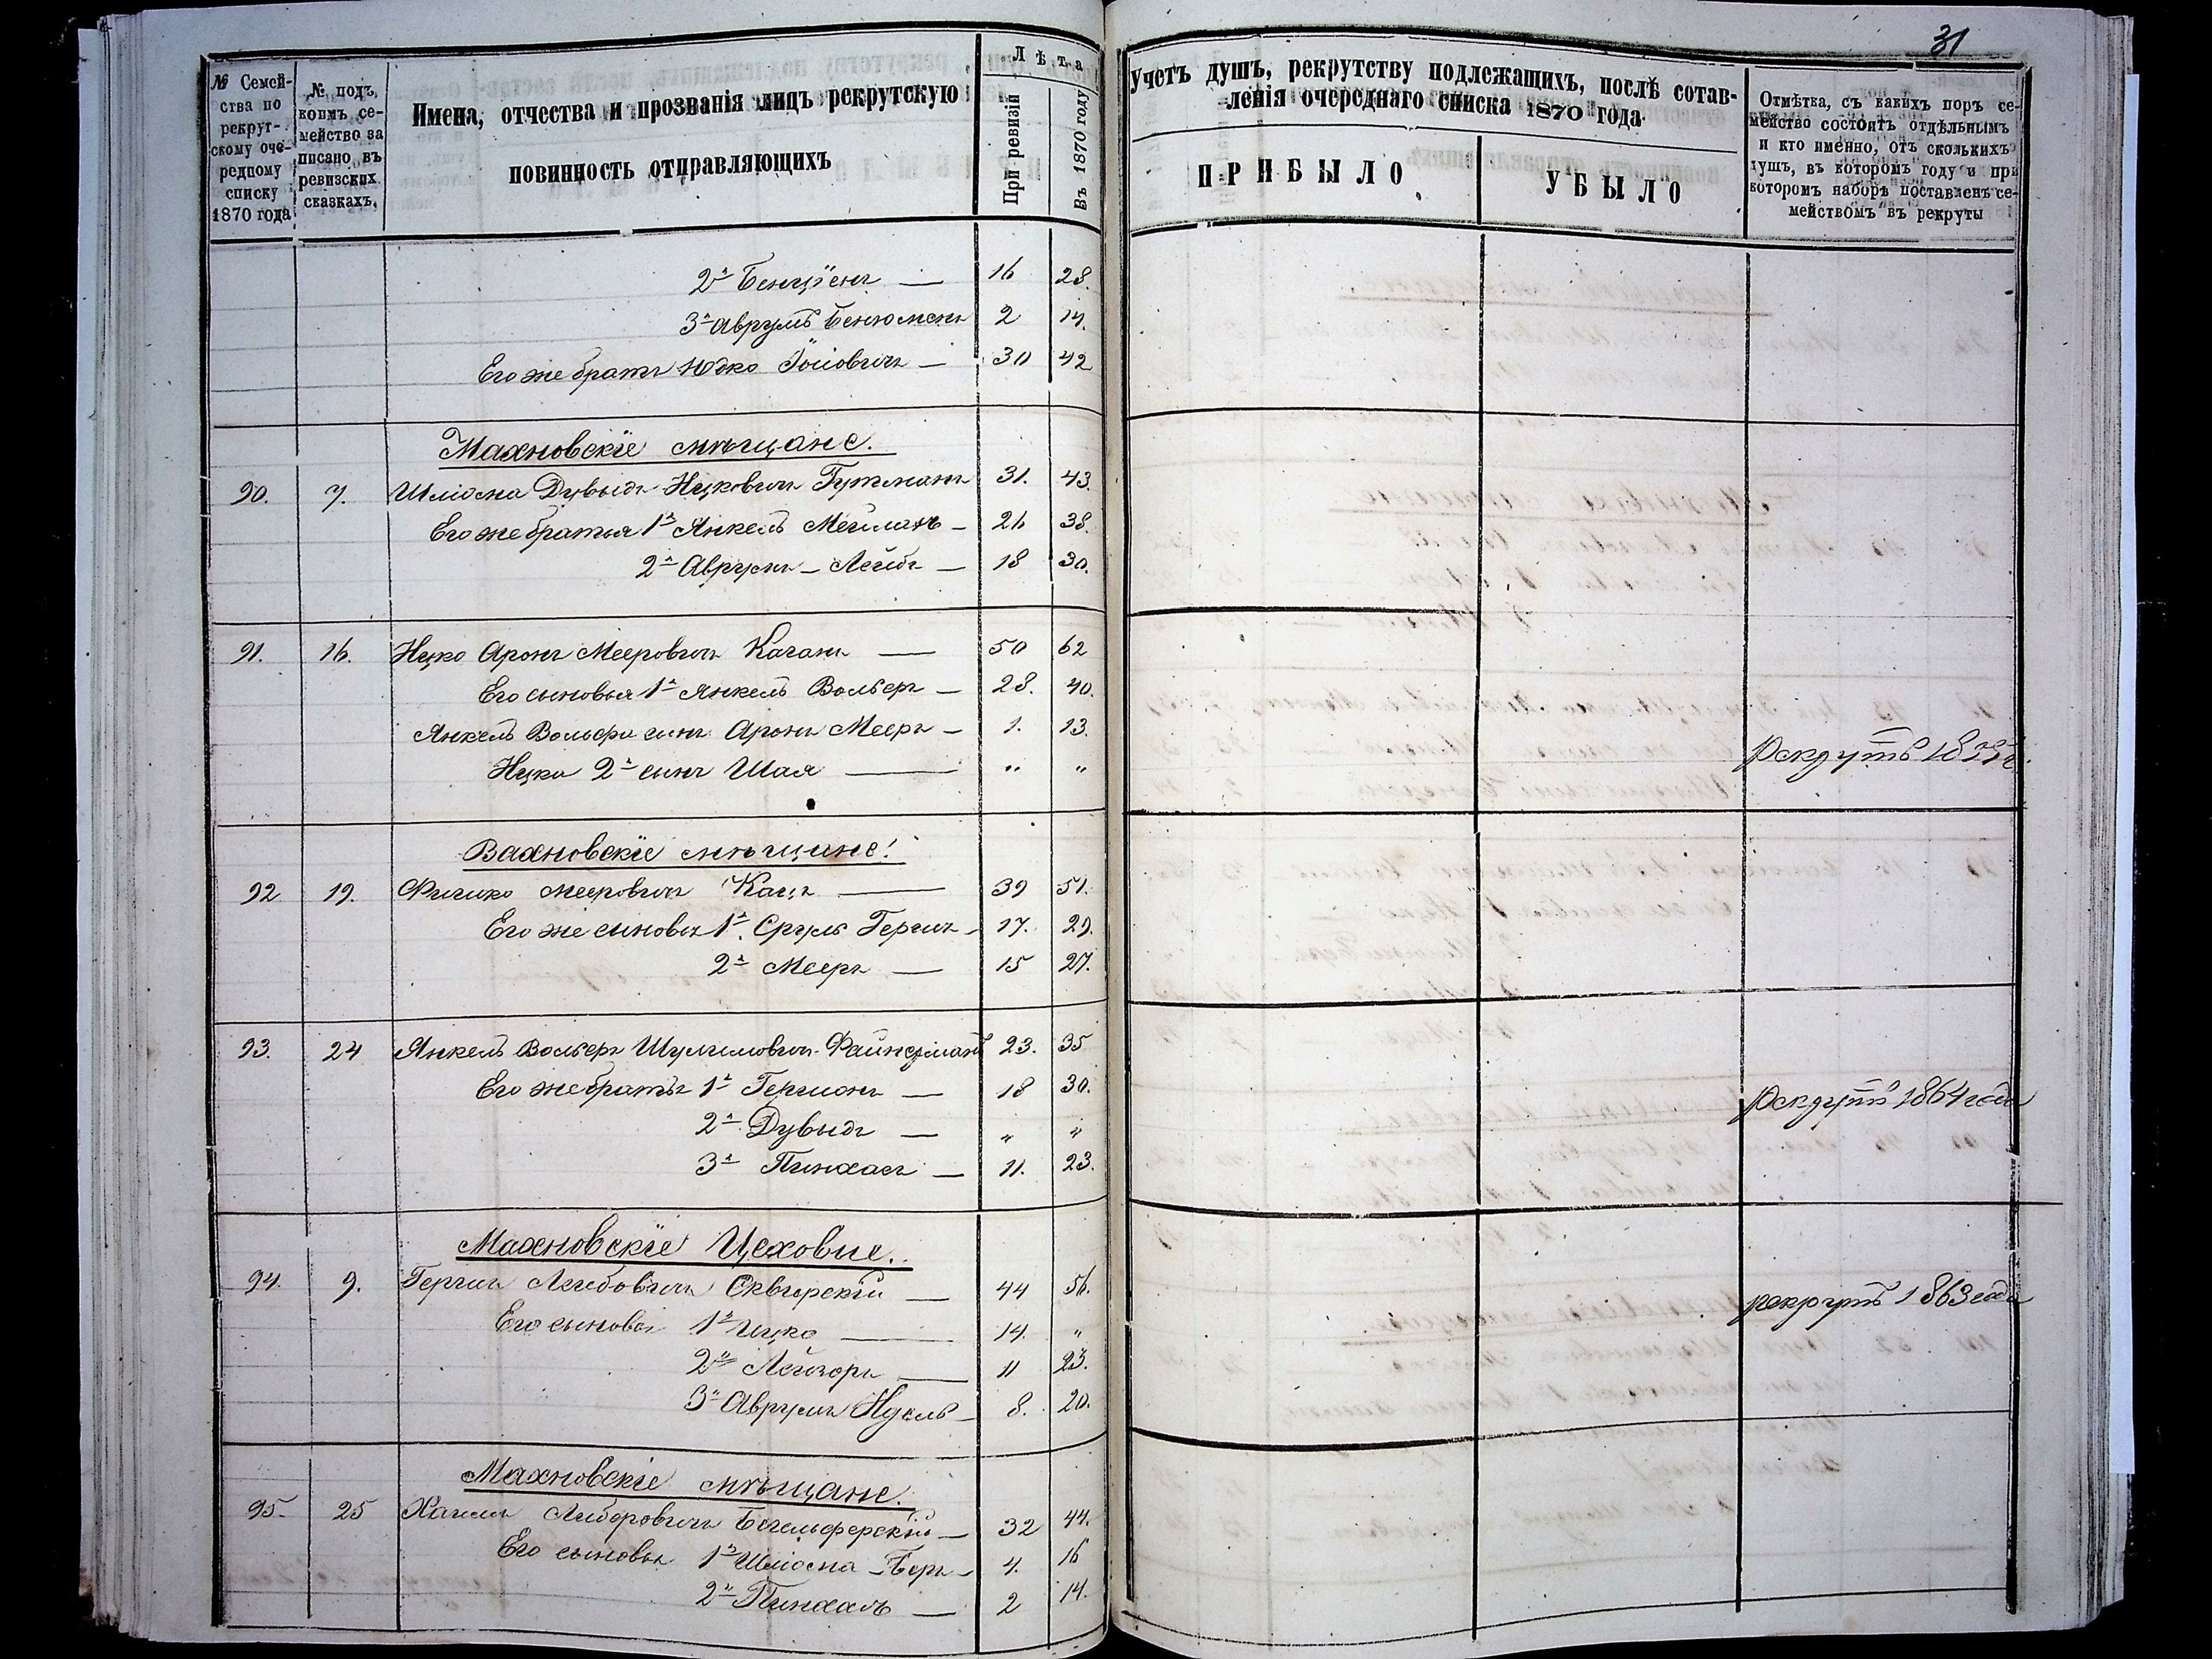 31
№ Семей-
ства по
рекрут-
скому оче-
редному
списку
1870 года
№ подъ
коимъ се-
мейство за
писано въ
ревизскихъ
сказкахъ.
Имена, отчества и прозванія лицъ рекрутскую
повинность отправляющихъ
Лѣта
При ревизіи
Въ 1870 году
Учетъ душъ, рекрутству подлежащихъ, послѣ состав-
ленія очереднаго списка 1870 года
ПРИБЫЛО
УБЫЛО
Отмѣтка, съ какихъ поръ се-
мейство состоитъ отдѣльнымъ
и кто именно, отъ сколькихъ
душъ, въ которомъ году и при
которомъ наборѣ поставленъ се-
мействомъ въ рекруты
2й Бенціенъ — 16 28.
3й Аврумъ Бенюменъ 2 14.
Его же братъ Юдко Іосіовичъ — 30 42
Махновскіе мѣщане.
90. 7. Шліома Дувыдъ Ицковичъ Гутманъ 31. 43.
Его же братья 1й Янкель Мейлахъ — 26 38.
2й Аврумъ — Лейбъ — 18 30.
91. 16. Ицко Аронъ Мееровичъ Каганъ — 50 62
Его сыновья 1й Янкель Вольфъ — 28. 40.
Янкель Вольфа сынъ Аронъ Мееръ — 1. 13.
Ицка 2й сынъ Шая — " "
Рекрутъ 1855г.
Вахновскіе мѣщане.
92 19. Фишко Мееровичъ Кацъ — 39 51.
Его же сыновья 1й Сруль Гершъ — 17. 29.
2й Мееръ — 15 27.
93. 24 Янкель Вольфъ Шулимовичъ Файнерманъ 23. 35
Его же братья 1й Гершонъ — 18 30.
2й Дувыдъ — " "
Рекрутъ 1864 года
3й Пинхасъ — 11. 23.
Махновскіе Цеховые.
94. 9. Гершъ Лейбовичъ Сквирскій — 44 56.
Его сыновья 1й Ицко — 14. "
рекрутъ 1863 года
2й Лейзоръ — 11 23.
3й Аврумъ Идель — 8. 20.
Махновскіе мѣщане.
95. 25 Хаимъ Либоровичъ Бегельферскій — 32 44.
Его сыновья 1й Шліома — Беръ — 4. 16
2й Пинхасъ — 2 14.